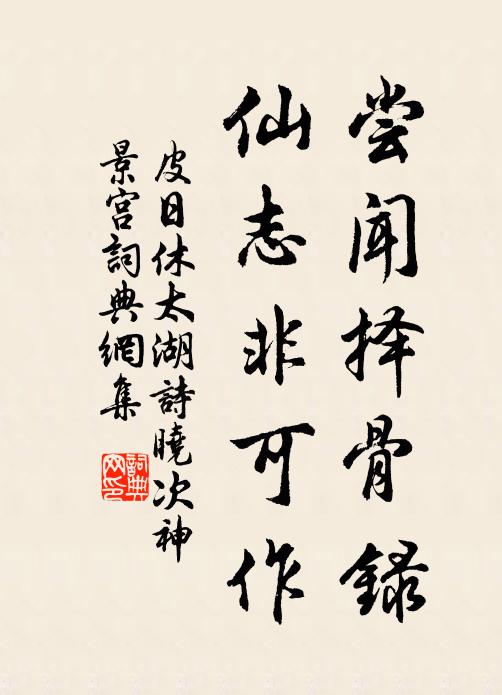 尝闻择骨録
仙志非可作
皮日休太湖詩曉次神
景宫詞典網集
詞典
网印